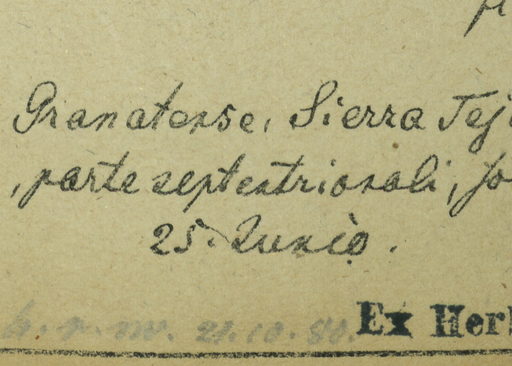 Granatense, Sierra Tej
, parte septentrionali,
25. Junio.
21.10.80.
Ex Herb